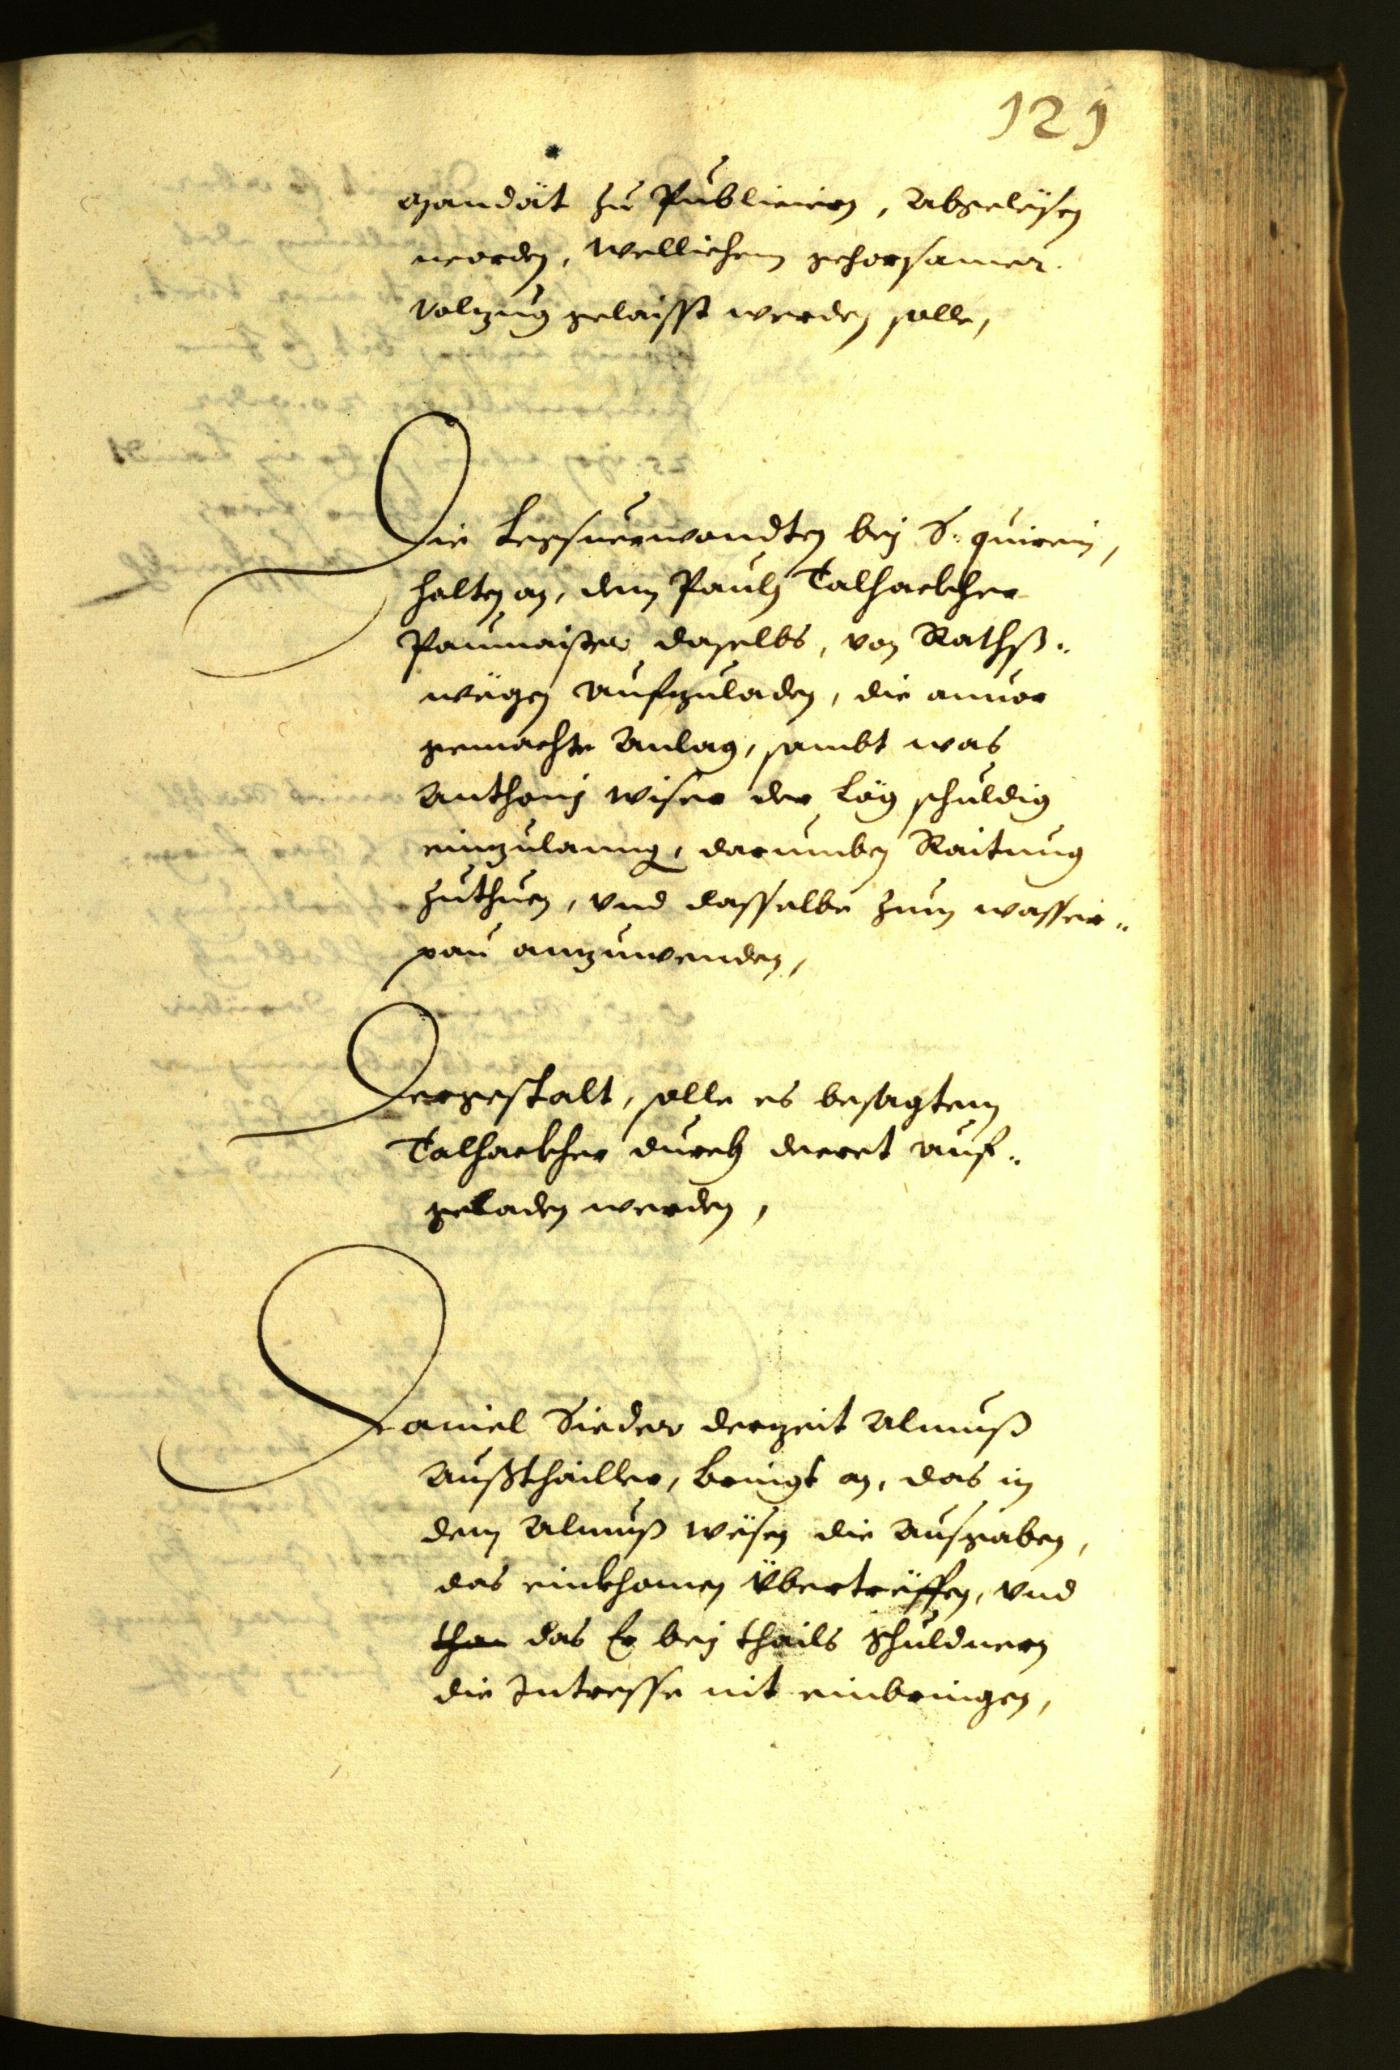 121
Mandät zu Publiciern, Abgelesen
worden, wellichem gehorsamer
Volzug gelaisst werden solle,
Die Legsverwandten bey S: Quirein,
halten an, dem Pauln Talhackher
Paumaister daselbs, von Rathß„
wägen aufzuladen, die anvor
gemachte Anlag, sambt was
Anthonj Wiser der Läg schuldig
einzulanng, darumben Raitung
zuthuen, vnd dasselbe zum wasser„
pau anzuwenden,
Dergestalt, solle es besagtem
Talhackher durch decret auf„
geladen werden,
Daniel Sieder derzeit Almuß
Außthailler, bringt an, das in
dem Almuß wësen die Ausgaben,
das einkhomen Übertreffen, vnd
das Er bey thails Schuldnern
die Interesse nit einbringen,